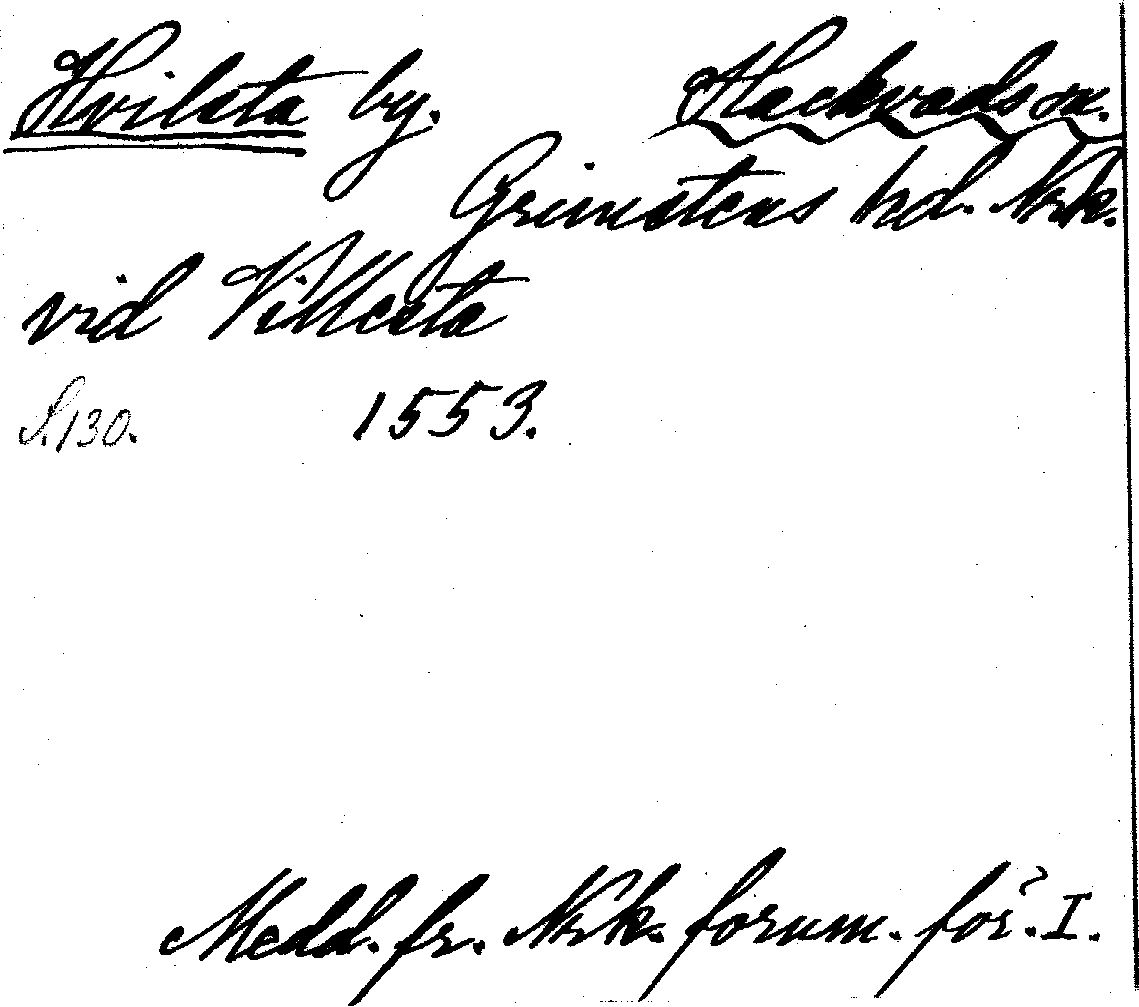 Hvilsta by. Hackvads sn.
Grimstens hd. Nrk.
vid Villsta
S. 130. 1553.
Medd. fr. Nrk. fornm. för. I.